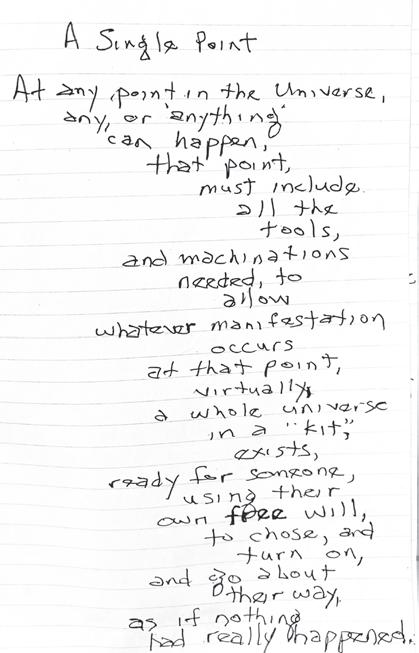 A Single Point
At any point in the Universe,
any, or "anything"
can happen,
that point,
must include
all the
tools,
and machinations
needed, to
allow
whatever manifestation
occurs
at that point,
virtually,
a whole universe
in a "kit",
exists,
ready for someone,
using their
own free will,
to chose, and
turn on,
and go about
their way,
as if nothing
had really happened.